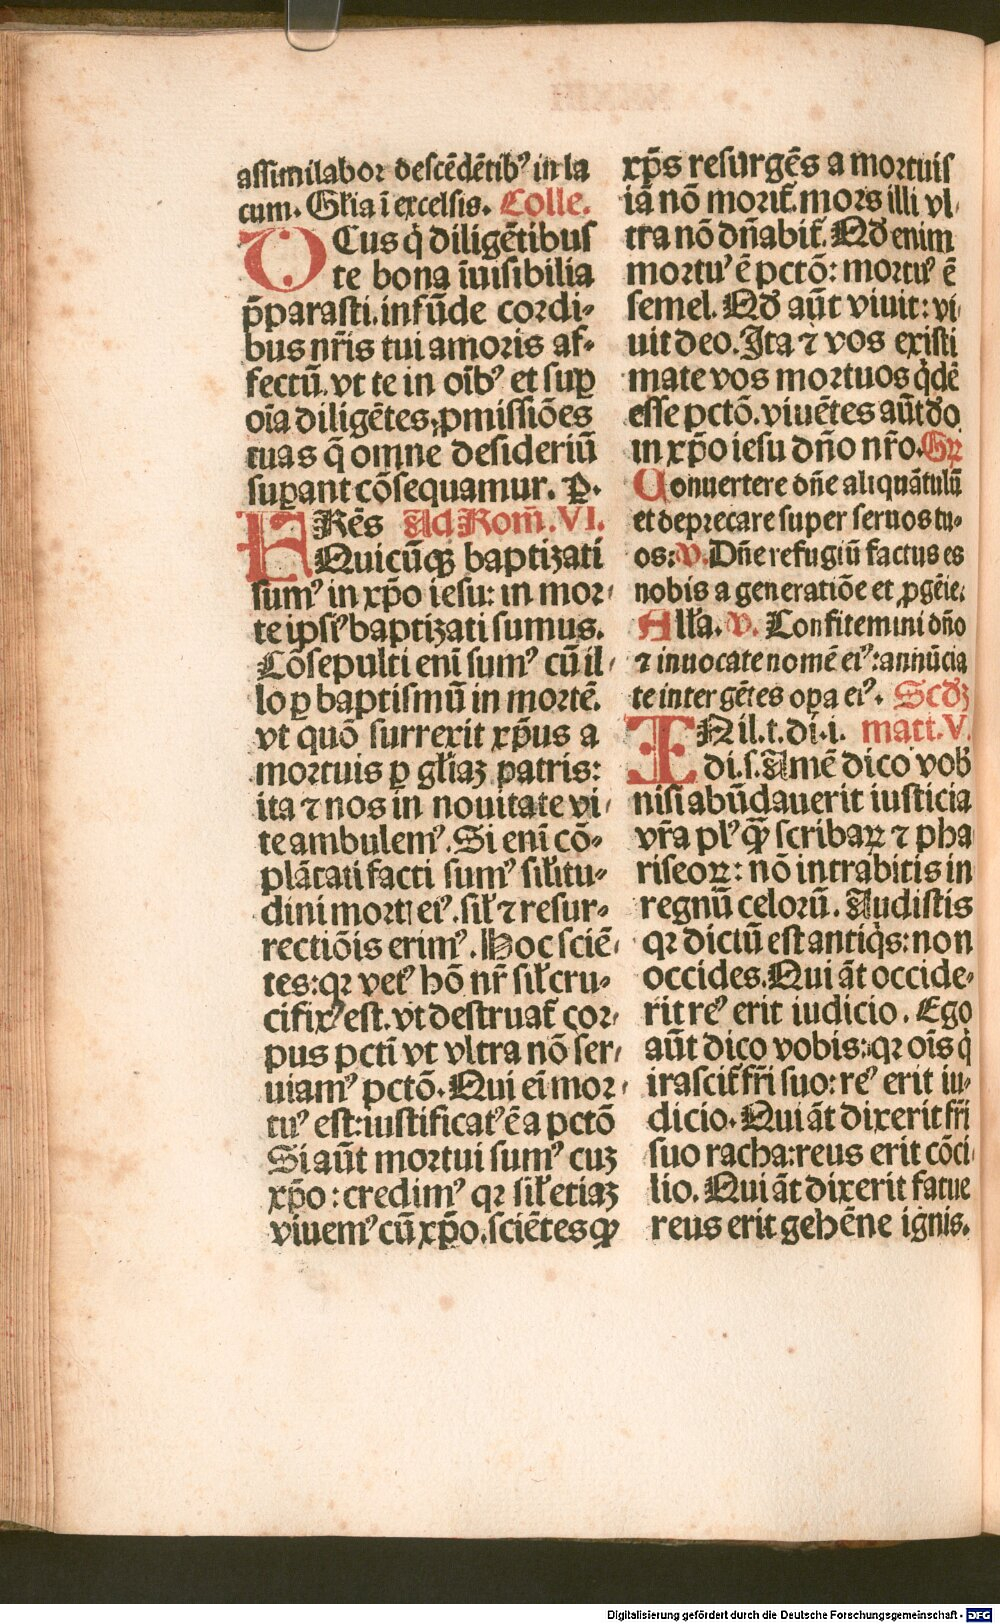 assimilabor descēdētibꝰ in la
cum. Gl̄ia ī excelsis. Colle.
DEus q̇ diligētibus
te bona īuisibilia
p̄parasti. infūde cordi-
bus nr̄is tui amoris af-
fectū. vt te in oībꝰ et suꝑ
oīa diligētes. ꝓmissiōes
tuas q̄ omne desideriū
suꝑant cōsequamur. P.
FRēs Ad Rom̄. VI.
Quicūqꝫ baptizati
sumꝰ in xp̄o iesu: in mor-
te ipsiꝰ baptizati sumus.
Cōsepulti enī sumꝰ cū il-
lo ꝑ baptismū in mortē.
vt quō surrexit xp̄us a
mortuis ꝑ gl̄iaꝫ patris:
ita ⁊ nos in nouitate vi-
te ambulemꝰ. Si enī cō-
plātati facti sumꝰ sil̄itu-
dini mortꝭ eiꝰ. sil̄ ⁊ resur-
rectiōis erimꝰ. Hoc sciē-
tes: qꝛ vetꝰ hō nr̄ sil̄ cru-
cifixꝰ est. vt destruat̄ cor-
pus pctī vt vltra nō ser-
uiamꝰ pctō. Qui ei̅ mor-
tuꝰ est: iustificatꝰ ē a pctō
Si aūt mortui sumꝰ cuꝫ
xp̄o: credimꝰ qꝛ sil̄ etiaꝫ
viuemꝰ cū xp̄o. sciētes qꝙ
xp̄s resurgēs a mortuis
iā nō morit̄. mors illi vl-
tra nō dn̄abit̄. Qđ enim
mortuꝰ ē pctō: mortuꝰ ē
semel. Qđ aūt viuit: vi-
uit deo. Ita ⁊ vos existi
mate vos mortuos q̇dē
esse pctō. viuētes aūt đo
in xp̄o iesu dn̄o nr̄o. Gr̄
Conuertere dn̄e aliquātulū
et deprecare super seruos tu-
os: V. Dn̄e refugiū factus es
nobis a generatiōe et ꝓgēie.
All̄a. V. Confitemini dn̄o
⁊ inuocate nomē eiꝰ: annūcia
te inter gētes oꝑa eiꝰ. Scđꝫ
IN il. t. di. i. matt. V.
di. s. Amē dico vob̄
nisi abūdauerit iusticia
vr̄a plꝰ qꝫ̄ scribaꝝ ⁊ pha
riseoꝝ: nō intrabitis in
regnū celorū. Audistis
qꝛ dictū est antiq̇s: non
occides. Qui āt occide-
rit reꝰ erit iudicio. Ego
aūt dico vobis: qꝛ oīs q̇
irascit̄ fr̄i suo: reꝰ erit iu-
dicio. Qui āt dixerit fr̄i
suo racha: reus erit cōci-
lio. Qui āt dixerit fatue
reus erit gehēne ignis.
Digitalisierung gefördert durch die Deutsche Forschungsgemeinschaft - DFG